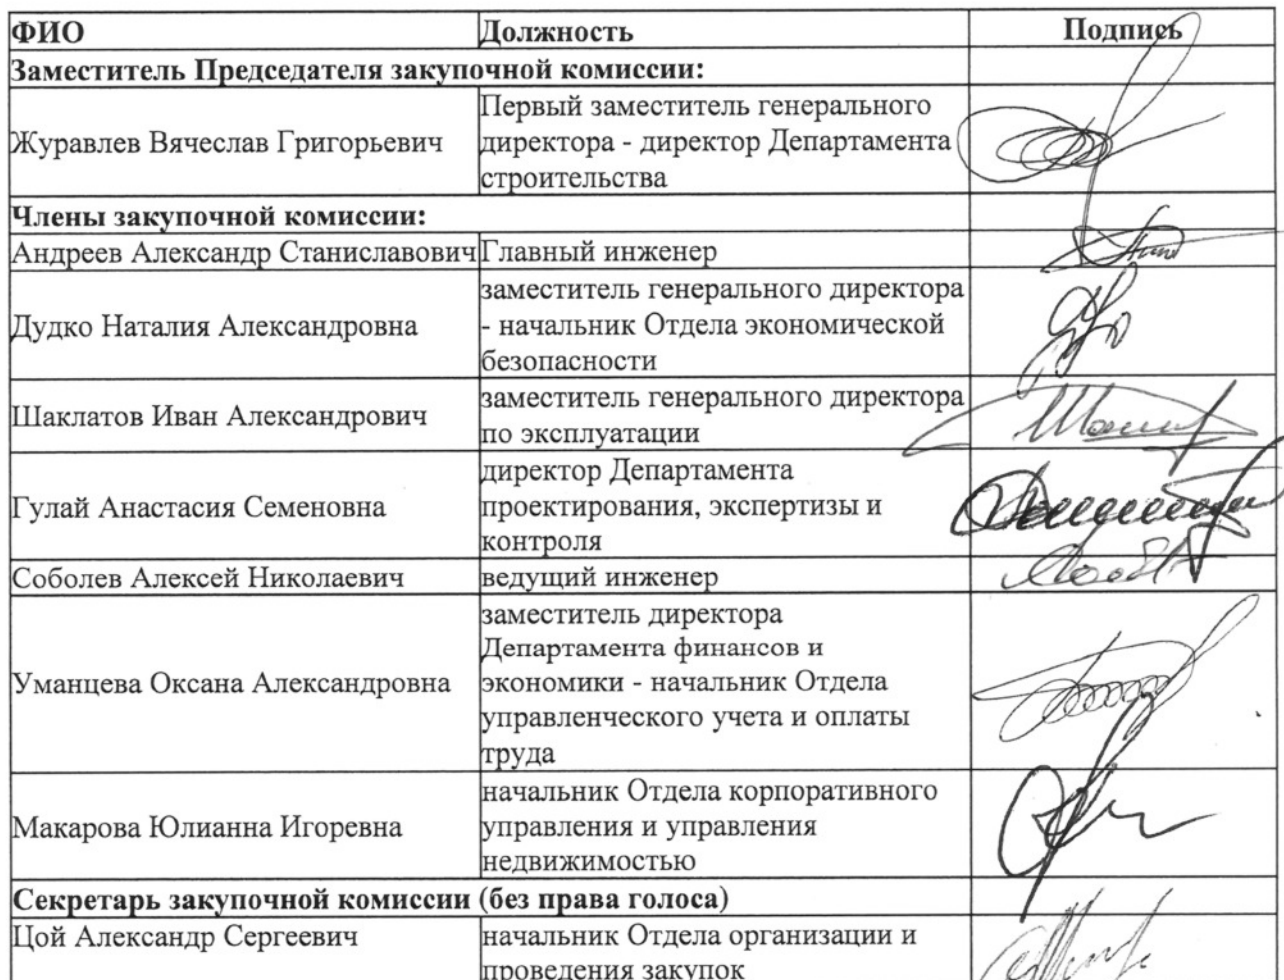 ФИО Должность Подпись
Заместитель Председателя закупочной комиссии:
Журавлев Вячеслав Григорьевич
Первый заместитель генерального
директора - директор Департамента
строительства
Члены закупочной комиссии:
Андреев Александр Станиславович Главный инженер
Дудко Наталия Александровна
заместитель генерального директора
- начальник Отдела экономической
безопасности
Шаклатов Иван Александрович
заместитель генерального директора
по эксплуатации
Гулай Анастасия Семеновна
директор Департамента
проектирования, экспертизы и
контроля
Соболев Алексей Николаевич ведущий инженер
Уманцева Оксана Александровна
заместитель директора
Департамента финансов и
экономики - начальник Отдела
управленческого учета и оплаты
труда
Макарова Юлианна Игоревна
начальник Отдела корпоративного
управления и управления
недвижимостью
Секретарь закупочной комиссии (без права голоса)
Цой Александр Сергеевич
начальник Отдела организации и
проведения закупок